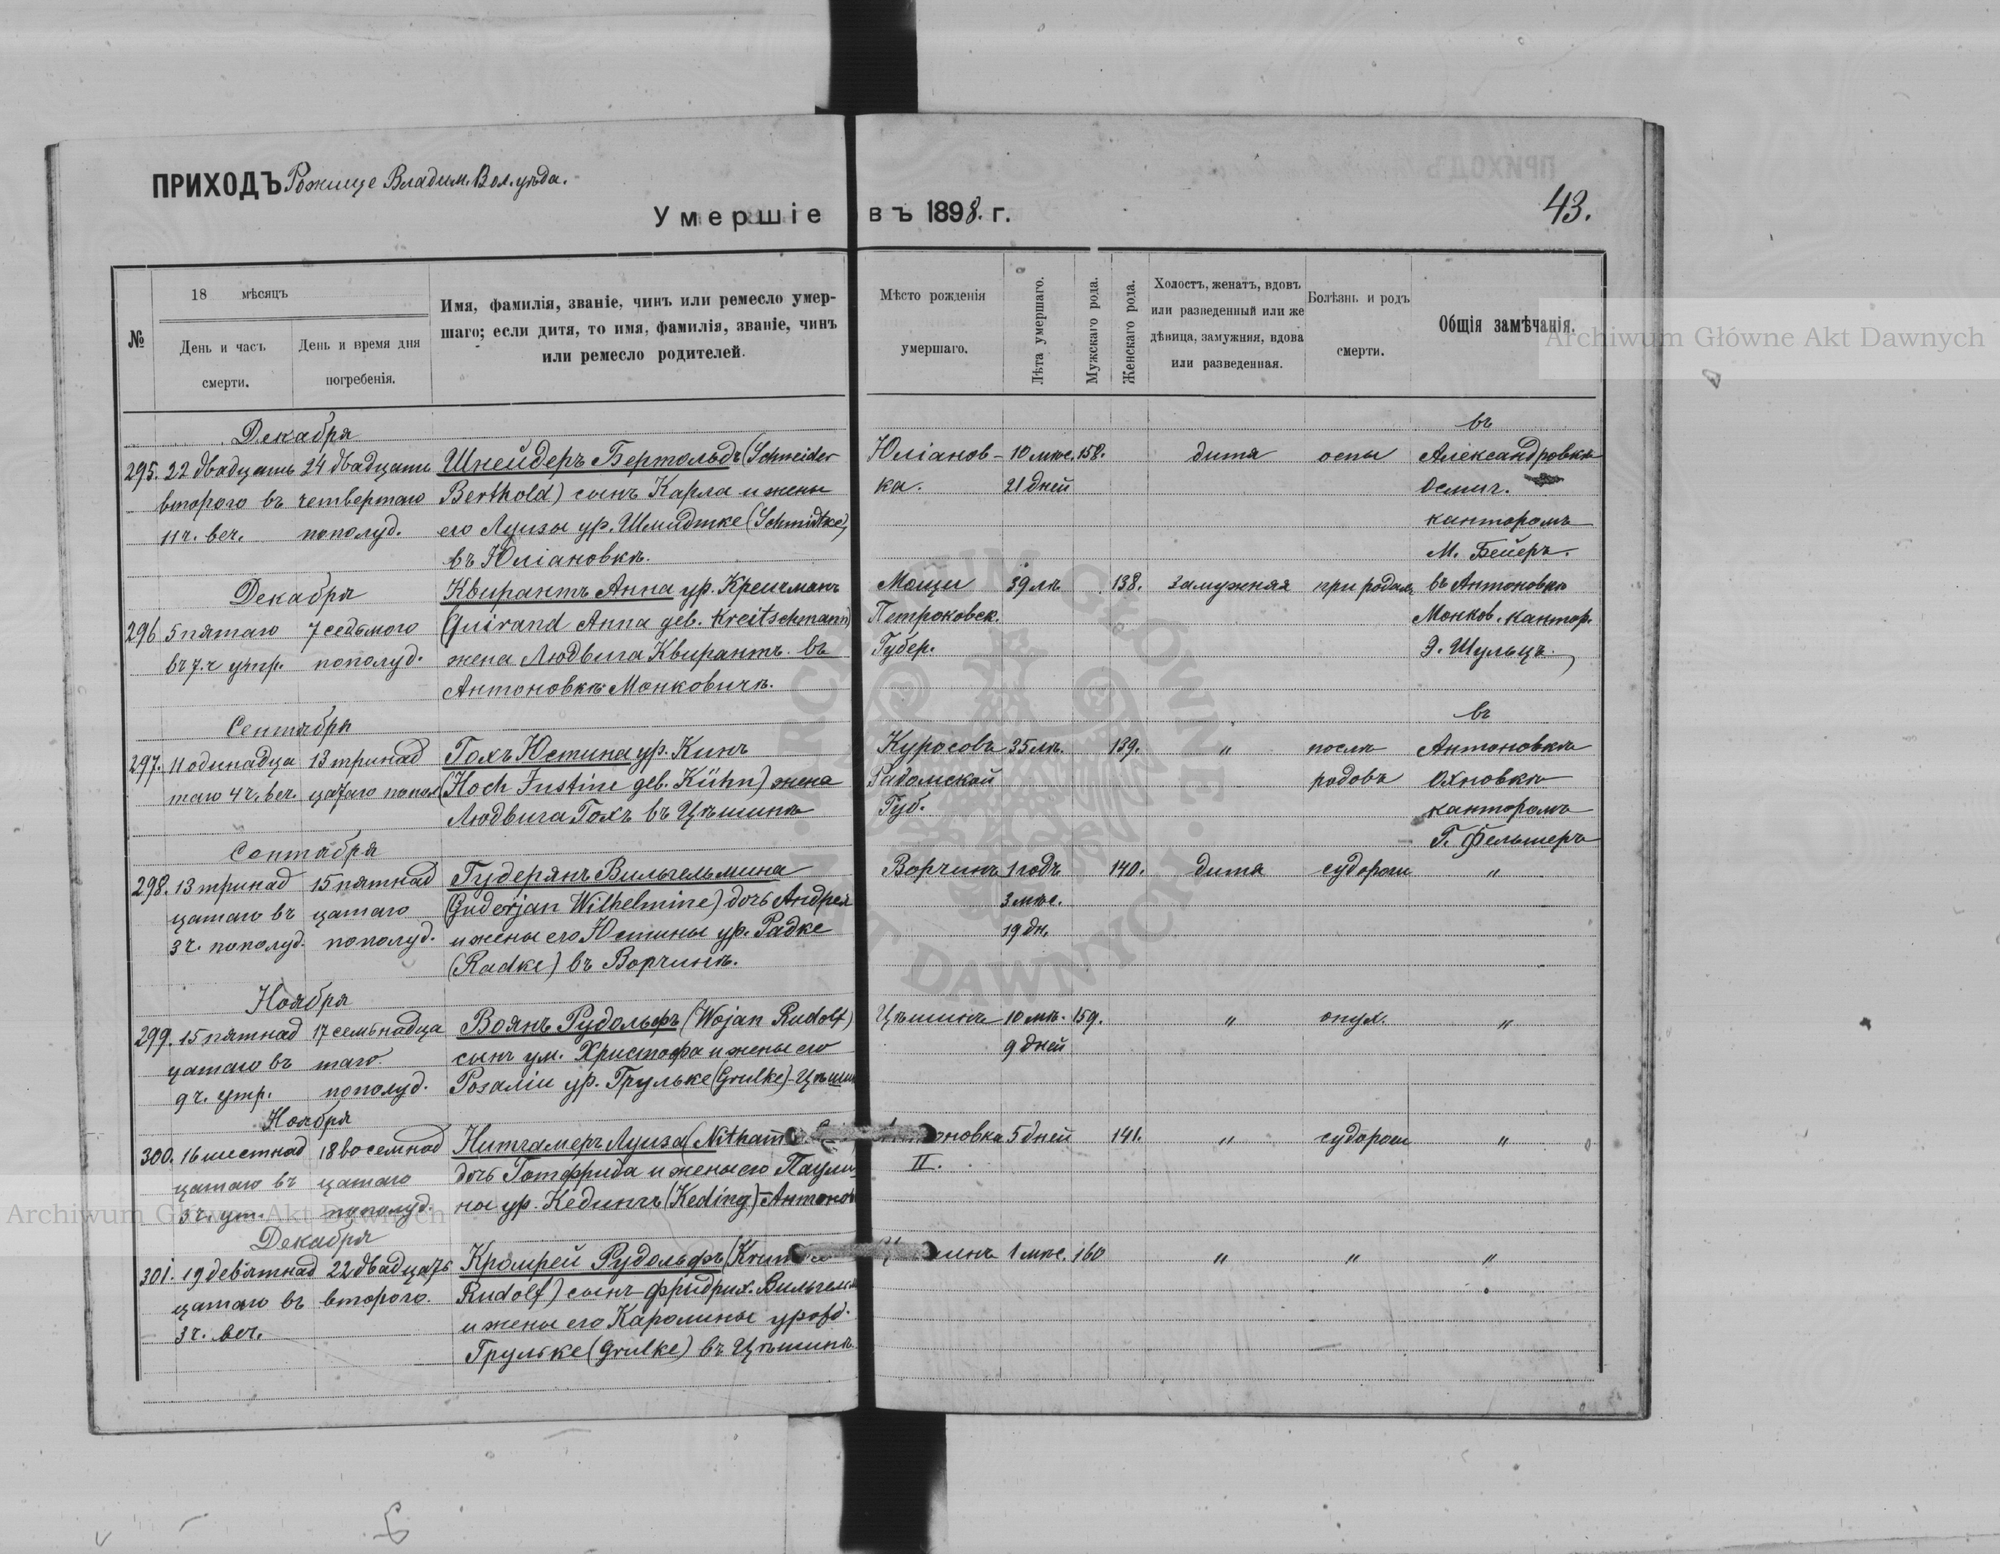 ПРИХОДЪ Рожище Владим. Вол. уѣзда.
Умершіе въ 1898. г.
43.
№
18 мѣсяцъ
День и часъ смерти.
День и время дня погребенія.
Имя, фамилія, званіе, чинъ или ремесло умер-
шаго; если дитя, то имя, фамилія, званіе, чинъ
или ремесло родителей.
Мѣсто рожденія умершаго.
Лѣта умершаго.
Мужскаго рода.
Женскаго рода.
Холостъ, женатъ, вдовъ
или разведенный или же
дѣвица, замужняя, вдова
или разведенная.
Болѣзнь и родъ смерти.
Общія замѣчанія.
Archiwum Główne Akt Dawnych
Декабря въ
295. 22 двадцать 24 двадцать Шнейдеръ Бертольдъ (Schneider Юліанов- 10 мѣс. 158. дитя оспы Александровкѣ
второго въ четвертаго Berthold) сынъ Карла и жены ка. 21 дней Осмиг.
11 ч. веч. пополуд. его Луизы ур. Шмидтке (Schmidtke), канторомъ
въ Юліановкѣ. М. Бейеръ.
Декабря Квирантъ Анна ур. Крейчманъ Мощи 39 лѣ. 138. замужняя при родахъ въ Антоновкѣ
296. 5 пятаго 7 седьмого (Quirand Anna geb. Kreitschmann) Петроковск. Монков. кантор.
въ 7. ч утр. пополуд. жена Людвига Квирантъ въ Губер. Э. Шульцъ.
Антоновкѣ Монковичѣ.
Сентября въ
297. 11 одинадца 13 тринад Гохъ Юстина ур. Кинъ Куросовъ 35 лѣ. 139. " послѣ Антоновкѣ
таго 4 ч. веч. цатаго попол (Hoch Justine geb. Kühn) жена Радомской родовъ Охновкѣ
Людвига Гохъ въ Цѣшинѣ Губ. канторомъ
Сентября Г. Фельшеръ
298. 13 тринад 15 пятнад Гудерянъ Вильгельмина Ворчинъ 1 годъ 140. дитя судороги "
цатаго въ цатаго (Guderjan Wilhelmine) дочь Андрея 3 мѣс.
3 ч. пополуд. пополуд. и жены его Юстины ур. Радке 19 дн.
(Radke) въ Ворчинѣ.
Ноября
299. 15 пятнад 17 семьнадца Воянъ Рудольфъ (Wojan Rudolf) Цѣшинъ 10 мѣ. 159. " опух. "
цатаго въ таго. сынъ ум. Христофа и жены его 9 дней
9 ч. утр. пополуд. Розаліи ур. Грульке (Grulke) - Цѣшин
Ноября
300. 16 шестнад 18 восемнад Нитгамеръ Луиза (Nitham оновка 5 дней 141. " судороги "
цатаго въ цатаго дочь Готфрида и жены его Паули II.
3 ч. ут. пополуд. ны ур. Кедингъ (Keding) - Антонов
Archiwum Główne Akt Dawnych
Декабря
301. 19 девятнад 22 двадцать Кромрей Рудольфъ (Krum инъ 1 мѣс. 160 " " "
цатаго въ второго. Rudolf) сынъ Фридрих. Вильгельм
3 ч. веч. и жены его Каролины урожд.
Грульке (Grulke) въ Цѣшинѣ
ARCHIWUM GŁÓWNE AKT DAWNYCH